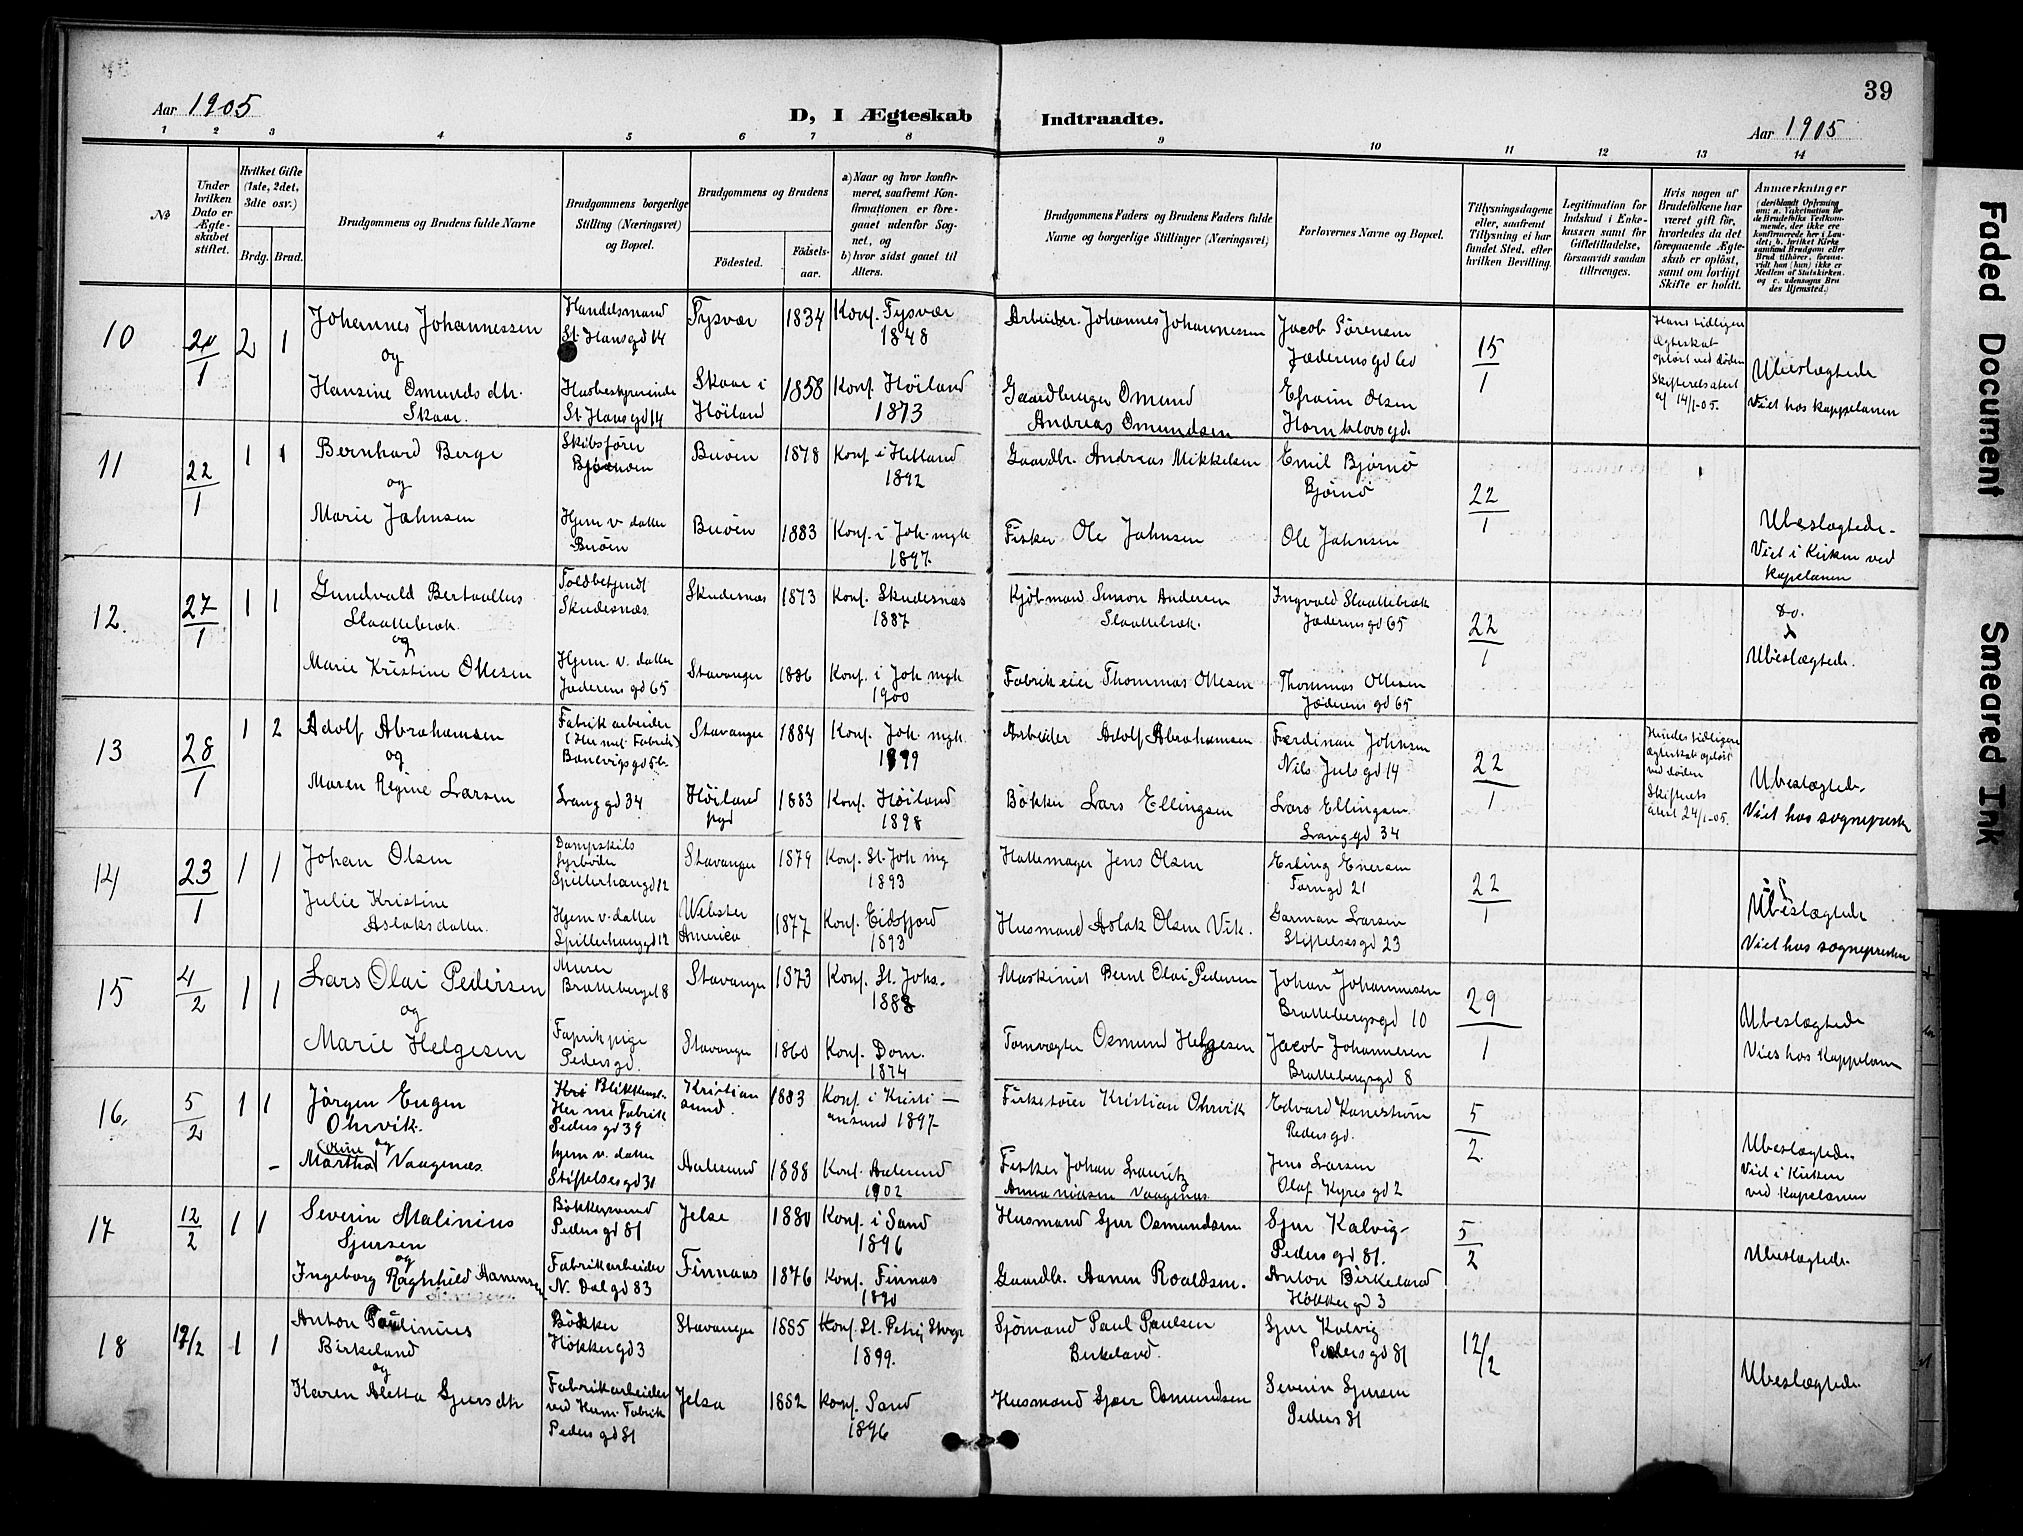 39
Aar 1905
D, I Ægteskab Indtraadte.
Aar 1905
1 2 3 4 5 6 7 8 9 10 11 12 13 14
No
Under hvilken Dato er Ægteskabet stiftet.
Hvilket Gifte (1ste, 2det, 3die osv.)
Brdg. Brud.
Brudgommens og Brudens fulde Navne
Brudgommens borgerlige Stilling (Næringsvei) og Bopæl.
Brudgommens og Brudens
Födested.
Födsels-aar.
a) Naar og hvor konfirmeret, saafremt Konfirmationen er foregaaet udenfor Sognet, og
b) hvor sidst gaaet til Alters.
Brudgommens Faders og Brudens Faders fulde Navne og borgerlige Stillinger (Næringsvei)
Forlovernes Navne og Bopæl.
Tillysningsdagene eller, saafremt Tillysning ei har fundet Sted, efter hvilken Bevilling.
Legitimation for Indskud i Enkekassen samt for Giftetilladelse, forsaavidt saadan tiltrænges.
Hvis nogen af Brudefolkene har været gift för, hvorledes da det foregaaende Ægteskab er oplöst, samt om lovligt Skifte er holdt.
Anmærkninger
(deriblandt Oplysning om: a. Vakcination for de Brudefolks Vedkommende, der ikke ere konfirmerede her i Landet; b. hvilket Kirkesamfund Brudgom eller Brud tilhører, forsaavidt han (hun) ikke er Medlem af Statskirken, og c. udensogns Brudes Hjemsted.)
10
20/1
2 1
Johannes Johannessen
og
Hansine Omunds dtr.
Skaar.
Handelsmand
St. Hansgd 14
Husbestyrerinde
St. Hansgd 14
Tysvær 1834
Konf. Tysvær
1848
Skaar i
Höiland 1858
Konf. Höiland
1873
Arbeider. Johannes Johannessen
Gaardbruger Omund
Andreas Omundsen
Jacob Sörensen
Jæderensgd
Efraim Olsen
Hornklovsgd.
15/1
Hans tidligere
Ægteskab
oplöst ved döden
Skifteretsattest
af 14/1-05.
Ubeslægtede
Viet hos kappelanen
11
22/1
1 1
Bernhard Berge
og
Marie Jahnsen
Skibsförer
Hjem. v. datter
Buöen
Buöen 1878
Konf. i Hetland
1892
Buöen 1883
Konf. i Joh. mgh
1897.
Gaardbr. Andreas Mikkelsen
Fisker Ole Jahnsen
Emil Bjørnö
Bjørnö
Ole Jahnsen
22/1
Ubeslægtede.
Viet i Kirken ved
Kapelanen
12.
27/1
1 1
Gundvald
Slaattebræk.
og
Marie Kristine Ollesen
Toldbetjendt
Skudesnæs.
Hjem. v. datter
Jæderens gd 65
Skudesnæs 1873
Konf. Skudesnæs
1887
Stavanger 1886
Konf. i Joh mgh
1900
Kjöbmand Simon Andersen
Slaattebræk.
Fabrik eier Thommas Ollesen
Ingvald Slaattebræk
Jæderens gd 65
Thommas Ollesen
Jæderens gd 65
22/1
do.
Ubeslægtede.
13
28/1
1 2
Adolf Abrahamsen
og
Maren Regine Larsen
Fabrikarbeider
(Hermet. Fabrik)
Banevigsgd 5b.
Langgd 34
Stavanger 1884
Konf. Joh. mgh.
1899
Höiland
pgd 1883
Konf. Höiland
1898
Arbeider Adolf Abrahamsen
Bökker Lars Ellingsen
Ferdinan Johnsen
Nils Julsgd 14
Lars Ellingsen
Langgd 34
22/1
Hendes tidligere
ægteskab oplöst
ved döden
Skifterets
attest 24/1-05.
Ubeslægtede.
Viet hos sognepresten
14
23/1
1 1
Johan Olsen
Julie Kristine
Aslaksdatter.
Dampskibs
fyrböder
Spilderhaugd 12
Hjem v. datter
Spilderhauggd 12
Stavanger 1879
Konf. St. Joh mg
1893
Webster
America 1877
Konf. Eidsfjord
1893
Hattemager Jens Olsen
Husmand Aslak Olsen Vik.
Erling Enersen
Tarngd 21
Garman Larsen
Stiftelsesgd 23
22/1
Ubeslægtede
Viet hos sognepresten
15
4/2
1 1
Lars Olai Pedersen
og
Marie Helgesen
Murer
Brattebergd 8
Fabrikpige
Pedersgd.
Stavanger 1873
Konf. St. Johs.
1888
Stavanger 1860
Konf. Dom.
1874
Maskinist Bernt Olai Pedersen
Tomvægter Osmund Helgesen
Johan Johannesen
Brattebergsgd 10
Jacob Johannesen
Brattebergsgd 8
29/1
Ubeslægtede
Vies hos Kappelanen
16.
5/2
1 1
Jörgen Eugen
Ohrvik.
og
Martha Oline Vaagenæs.
Her me Fabrik
Peders gd 39
hjem v. datter
Stiftelsesgd 31
Kristian
sund. 1883
Konf. i Kristi-
ansund 1897-
Aalesund 1888
Konf. Aalesund
1902
Kristian Ohrvik
Fisker Johan Lauritz
Vaagenæs
Edvard Kanestrøm
Pedersgd.
Jens Larsen
Olaf Kyres gd 2
5/2
Ubeslægtede.
Viet i Kirken
ved Kapelanen
17
12/2
1 1
Severin Malinius
Sjursen
og
Ingeborg Raghnhild Aanensen
Bökkersvend
Peders gd 81
Fabrikarbeider
N. Dalgd 83
Jelse 1880
Konf. i Sand
1896
Finnaas 1876
Konf. Finnås
1890
Husmand Sjur Osmundsen
Gaardbr. Aanen Roaldsen.
Sjur Kalvig-
Peders gd 81.
Anton Birkeland
Hökkergd 3
5/2
Ubeslægtede.
18
12/2
1 1
Anton Paulinius
Birkeland
og
Karen Aletta Sjursdtr
Bökker
Hökkergd 3
Fabrikarbeider
ved Herm. Fabrik
Peders gd 81
Stavanger 1885
Konf. St. Petrij Stvgr
1899.
Jelsa 1882
Konf. Sand
1896
Sjömand Paul Paulsen
Birkeland.
Husmand Sjur Osmundsen
Sjur Kalvig
Pedersgd 81
Severin Sjursen
Peders 81
12/2
Ubeslægtede.
Faded Document
Smeared Ink